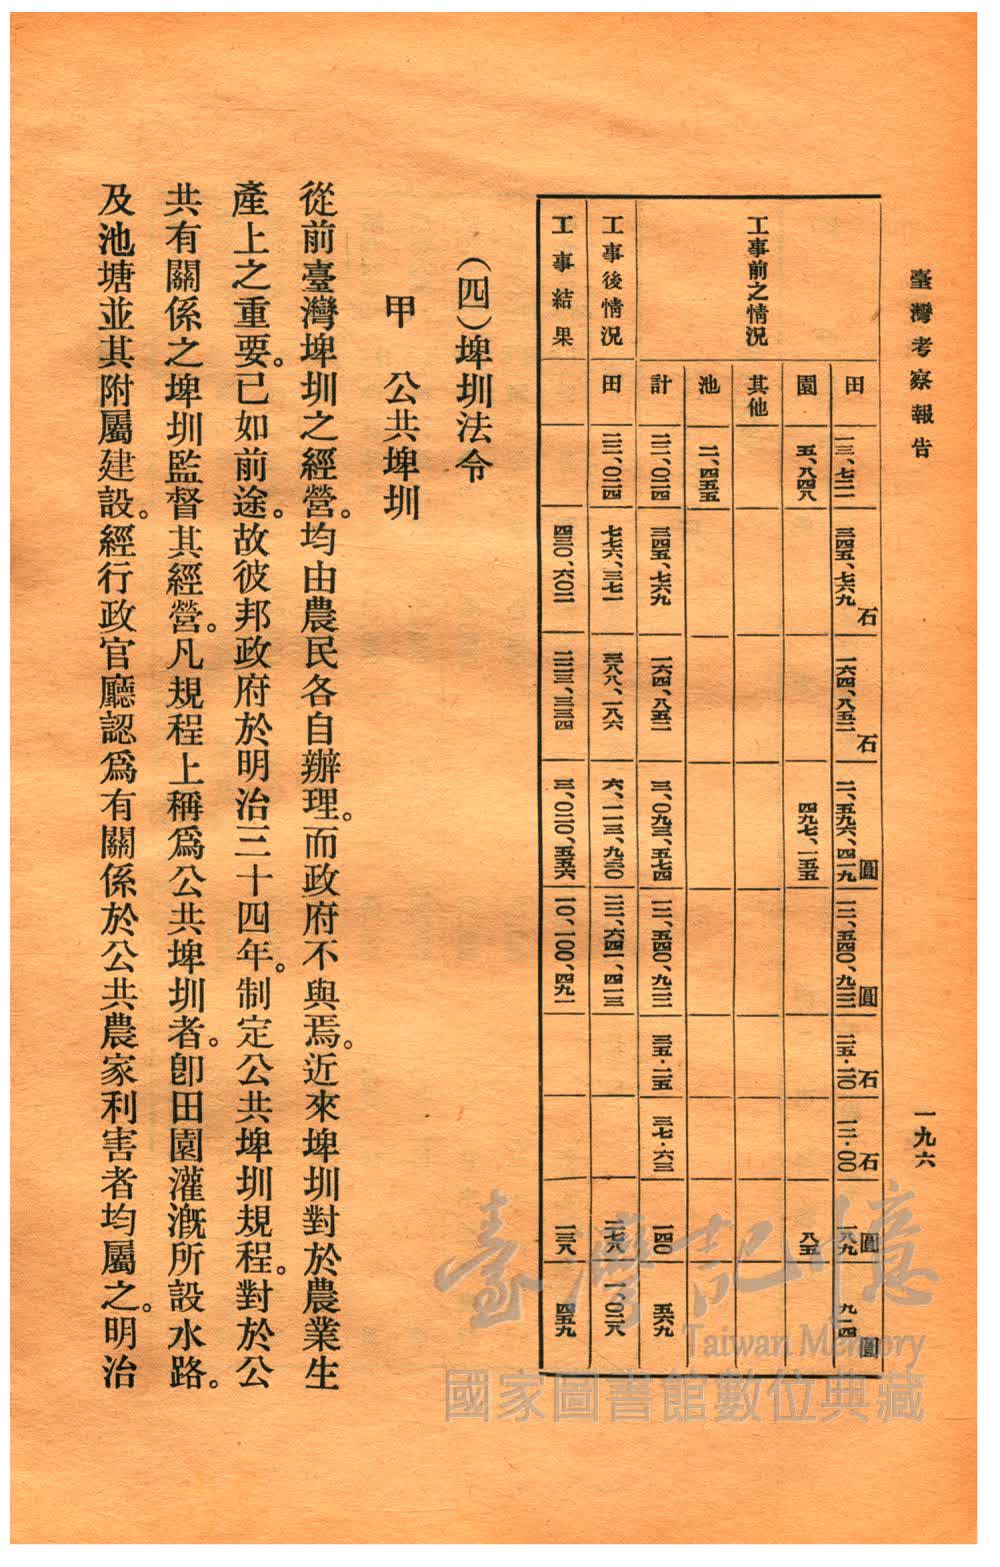 臺灣考察報告
一九六
工事前之情況
田 一三、七二一 三四五、七六九石 一六四、八五二石 二、五九六、四一九圓 一二、五四〇、九二二圓 二五・二〇石 一二・〇〇石 一八九圓 九一四圓
園 五、八四八 四九七、一五五 八五
其他
池 二、四五五
計 二二、〇二四 三四五、七六九 一六四、八五二 三、〇九三、五七四 一二、五四〇、九二二 三五・二五 一七・六三 一四〇 五六九
工事後情況 田 二二、〇二四 七七六、三七一 三八八、一八六 六、一一三、九三〇 二二、六四一、四一三 二七八 一、〇二八
工事結果 四三〇、六〇二 二二三、三三四 三、〇二〇、五五六 一〇、一〇〇、四九一 一三八 四五九
(四)埤圳法令
甲 公共埤圳
從前臺灣埤圳之經營。均由農民各自辦理。而政府不與焉。近來埤圳對於農業生
產上之重要。已如前途。故彼邦政府於明治三十四年。制定公共埤圳規程。對於公
共有關係之埤圳監督其經營。凡規程上稱爲公共埤圳者。卽田園灌漑所設水路。
及池塘並其附屬建設。經行政官廳認爲有關係於公共農家利害者均屬之。明治
臺灣記憶
Taiwan Memory
國家圖書館數位典藏